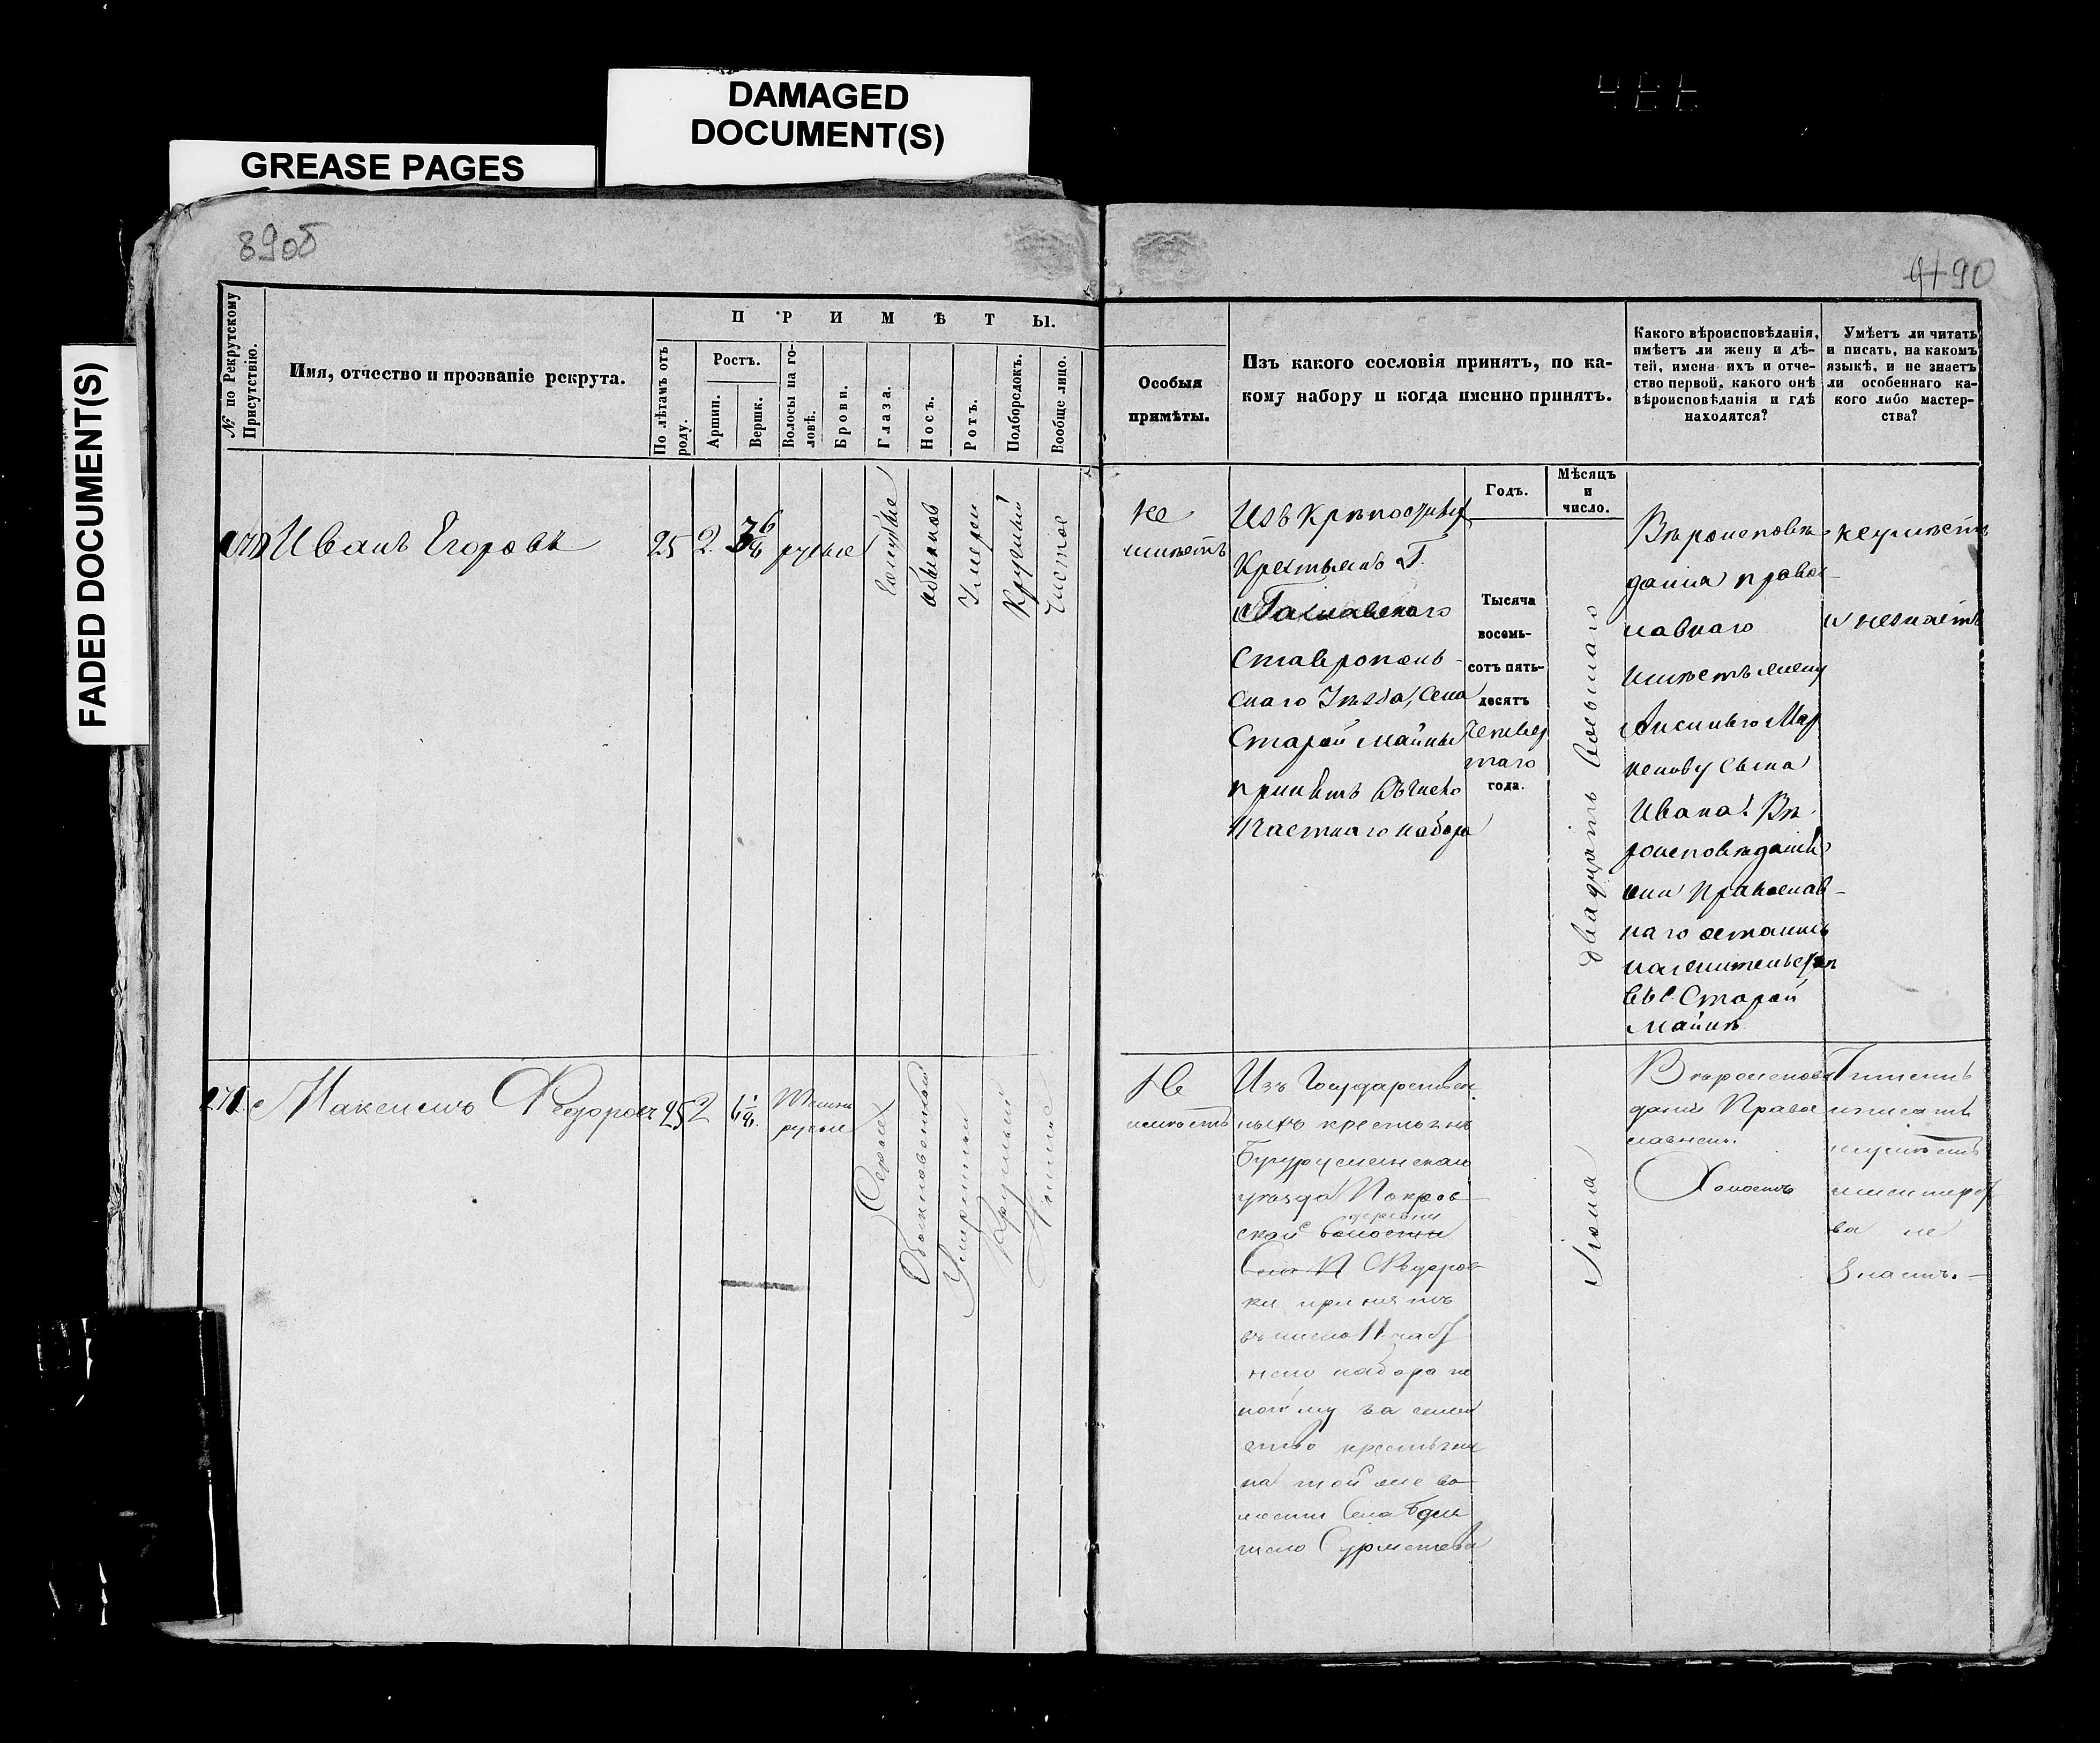 DAMAGED
DOCUMENT(S)
GREASE PAGES
FADED DOCUMENT(S)
89об
91 90
№ по Рекрутскому
Присутствію.
Имя, отчество и прозваніе рекрута.
ПРИМѢТЫ.
По лѣтамъ отъ
роду.
Ростъ.
Аршин.
Вершк.
Волосы на го-
ловѣ.
Брови.
Глаза.
Носъ.
Ротъ.
Подбородокъ.
Вообще лицо.
Особыя
примѣты.
Изъ какого сословія принятъ, по ка-
кому набору и когда именно принятъ.
Какого вѣроисповѣданія,
имѣетъ ли жену и дѣ-
тей, имена ихъ и отче-
ство первой, какого онѣ
вѣроисповѣданія и гдѣ
находятся?
Умѣетъ ли читать
и писать, на какомъ
языкѣ, и не знаетъ
ли особеннаго ка-
кого либо мастер-
ства?
Годъ.
Мѣсяцъ
и
число.
Иванъ Егоровъ
25
2
русые
голубые
обыкнов
Умерен
Круглый
чистое
не
имѣетъ
Изъ Крѣпостныхъ
Крестьянъ Г.
Ставрополь-
скаго Уѣзда, Села
Старой Майны
принятъ въ число
11 частнаго набора
Тысяча
восемь-
сотъ пять-
десятъ
четвер
таго
года.
двадцать восьмаго
Вѣроисповѣ-
данія правос-
лавнаго
имѣетъ жену
сына
Ивана. Вѣ-
роисповѣданія
они Православ-
наго остались
на жительствѣ
въ с. Старой
Майнѣ
неумѣетъ
и незнаетъ
271.
Максимъ Федоровъ
25
2
русые
Серые
Обыкновенный
Умеренный
Круглый
Чистое
Не
имѣетъ
Изъ Государствен
ныхъ крестьянъ
Бугурусланскаго
уѣзда Покров
ской волости
деревни
Села Федоров
ки принятъ
въ число 11 част
наго набора по
найму за семей
ство крестьяни
на той же во
лости Села
Іюля
Вѣроисповѣ
данія Право
славнаго.
Холостъ
Читать
и писать
неумѣетъ
мастерст
ва не
знаетъ.